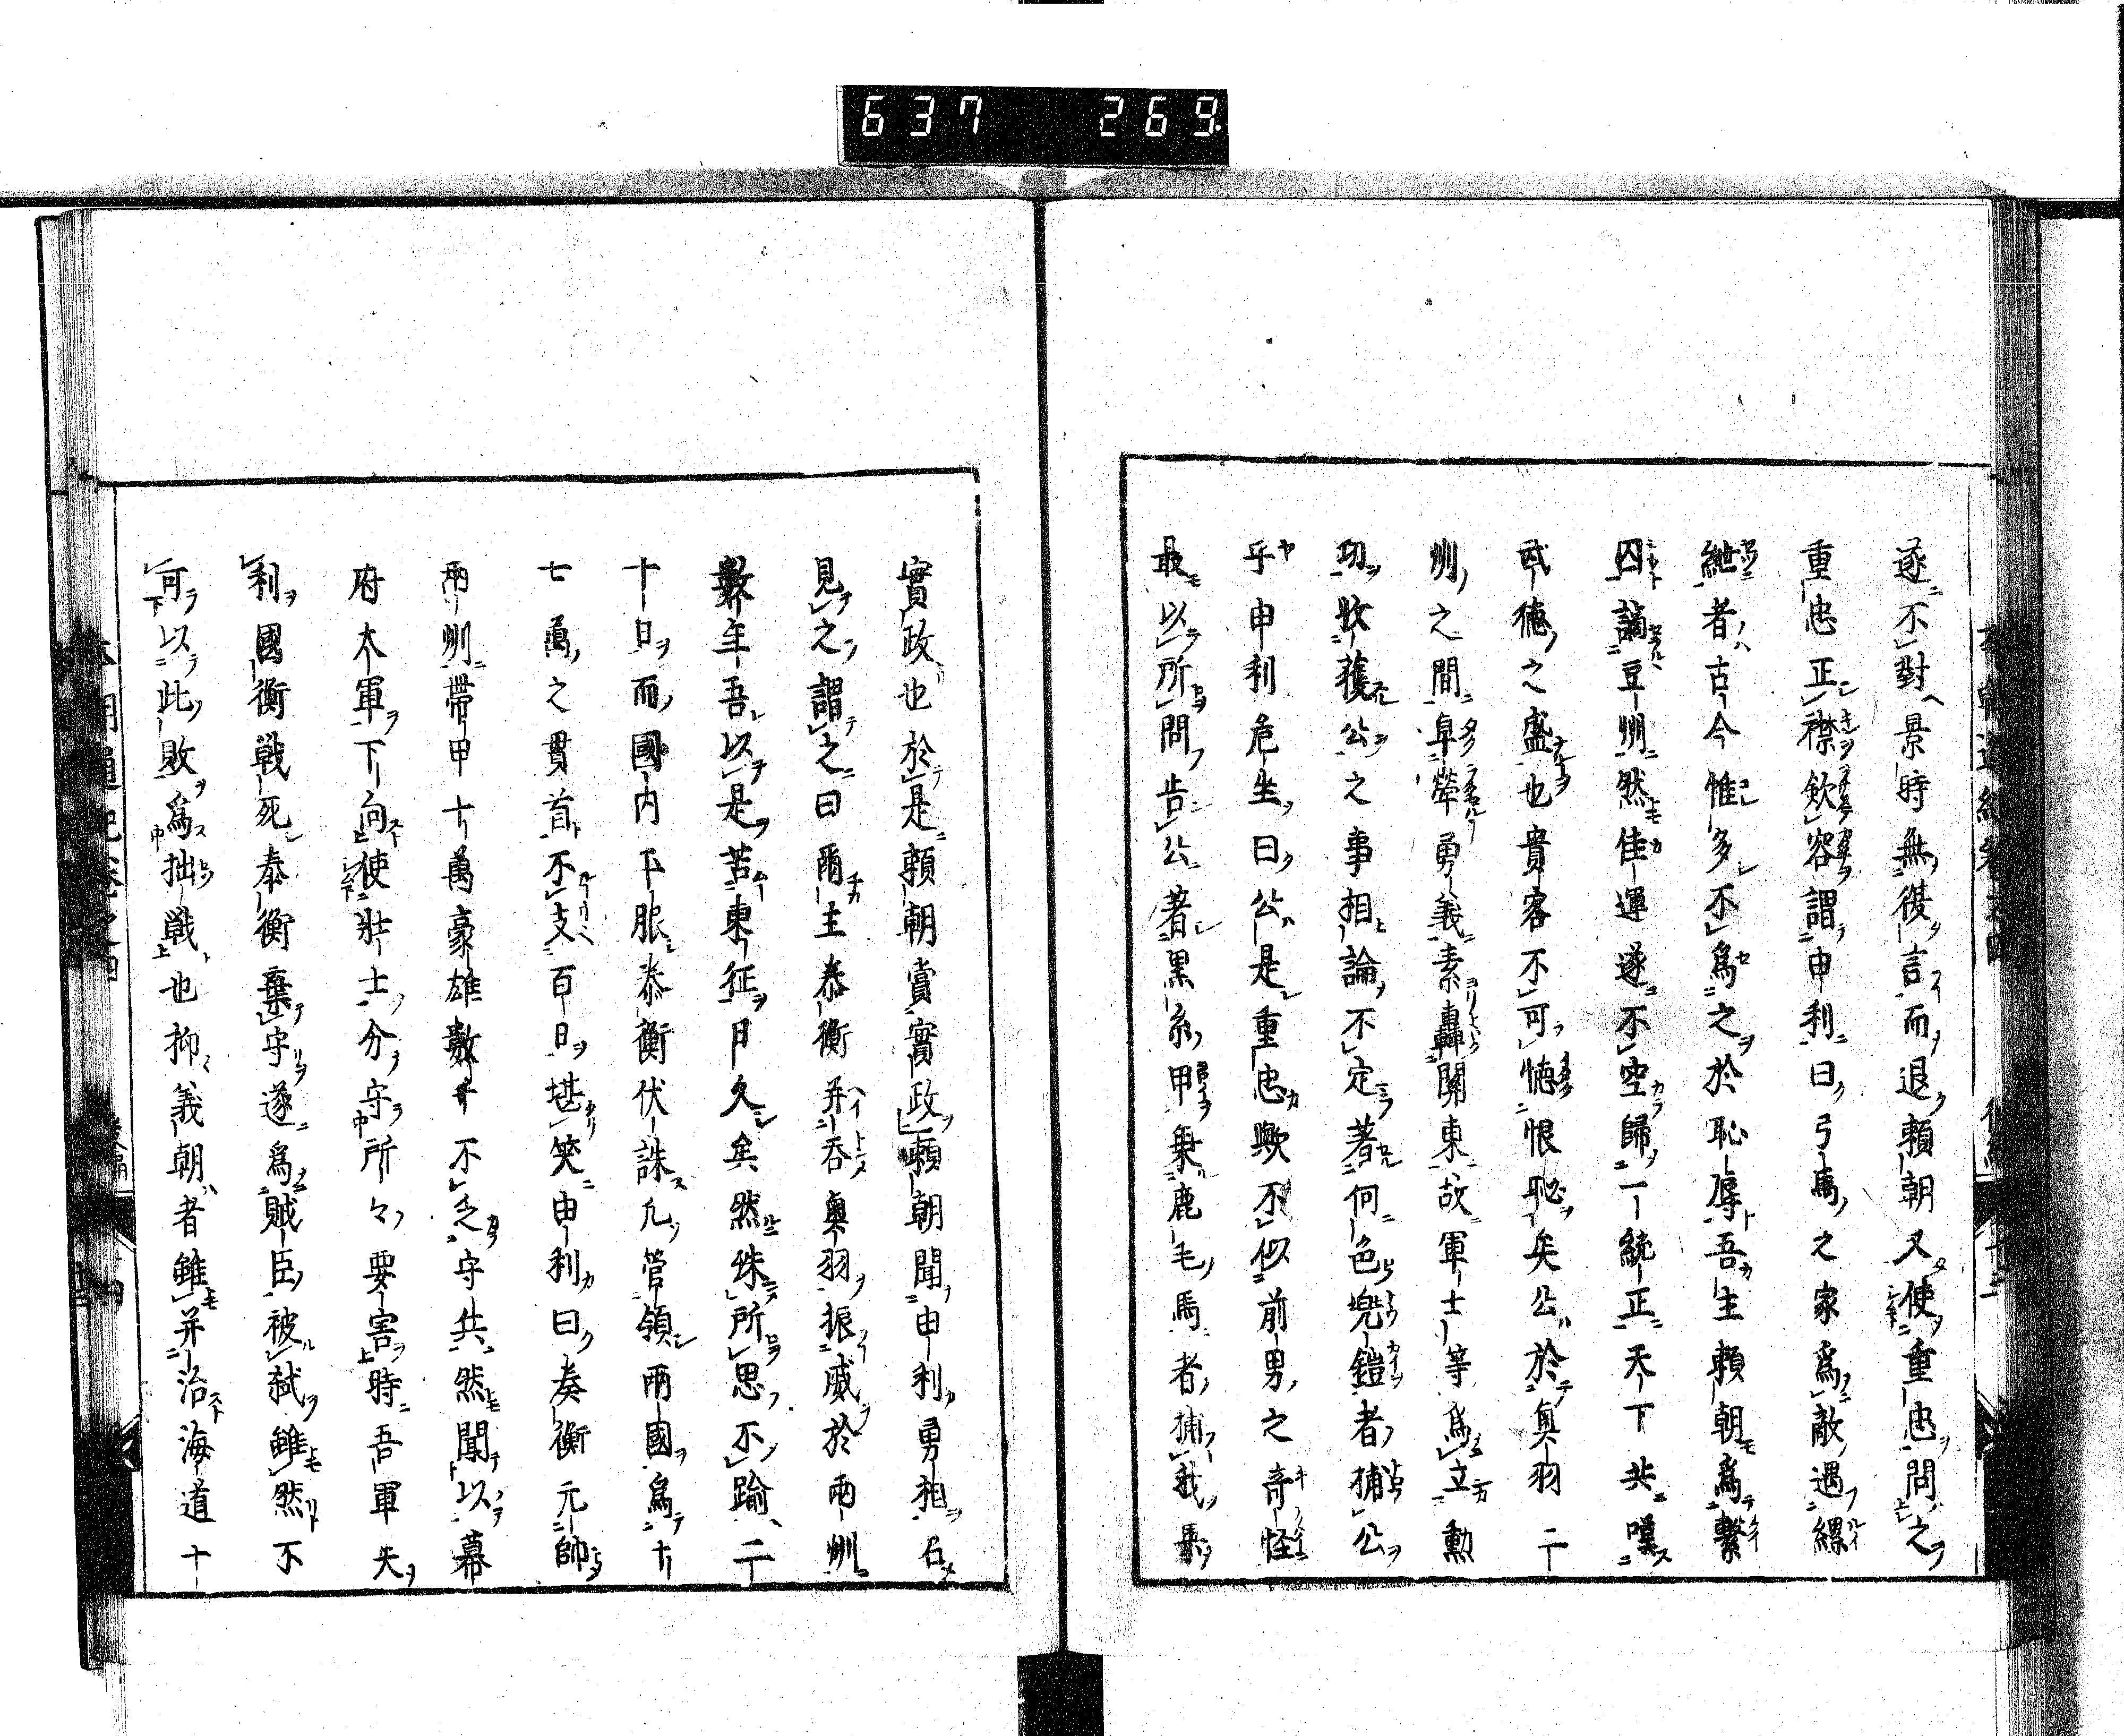 637 269.
遂不對景時無後言而退頼朝又使重忠問之
重忠正襟歛容謂申利曰弓馬之家爲敵遇縲
紲者古今惟多不爲之於恥辱吾主頼朝爲繫
囚謫豆州然佳運遂不空歸一統正天下共嘆
武德之盛也貴客不可憾恨恥矣公於奧羽二
州之間阜犖勇義素轟關東故軍士等爲立勲
功收獲公之事相論不定著何色兜鎧者捕公
乎申利危坐曰公是重忠歟不似前男之奇怪
最以所問告公著黒糸甲乗鹿毛馬者捕我乗
實政也於是頼朝賞實政頼朝聞申利勇相召
見之謂之曰爾主泰衡并吞奧羽振威於兩州
數年吾以是苦東征日久矣然殊所思不踰二
十日而國内平服泰衡伏誅凡管領兩國爲十
七萬之貫首不支百日堪笑由利曰泰衡元帥
兩州帶甲十萬豪雄數千不乏守共然聞以幕
府太軍下向使壯士分守所々要害時吾軍失
利國衡戰死泰衡棄守遂爲賊臣被弑雖然不
可以此敗爲拙戰也抑義朝者雖并治海道十